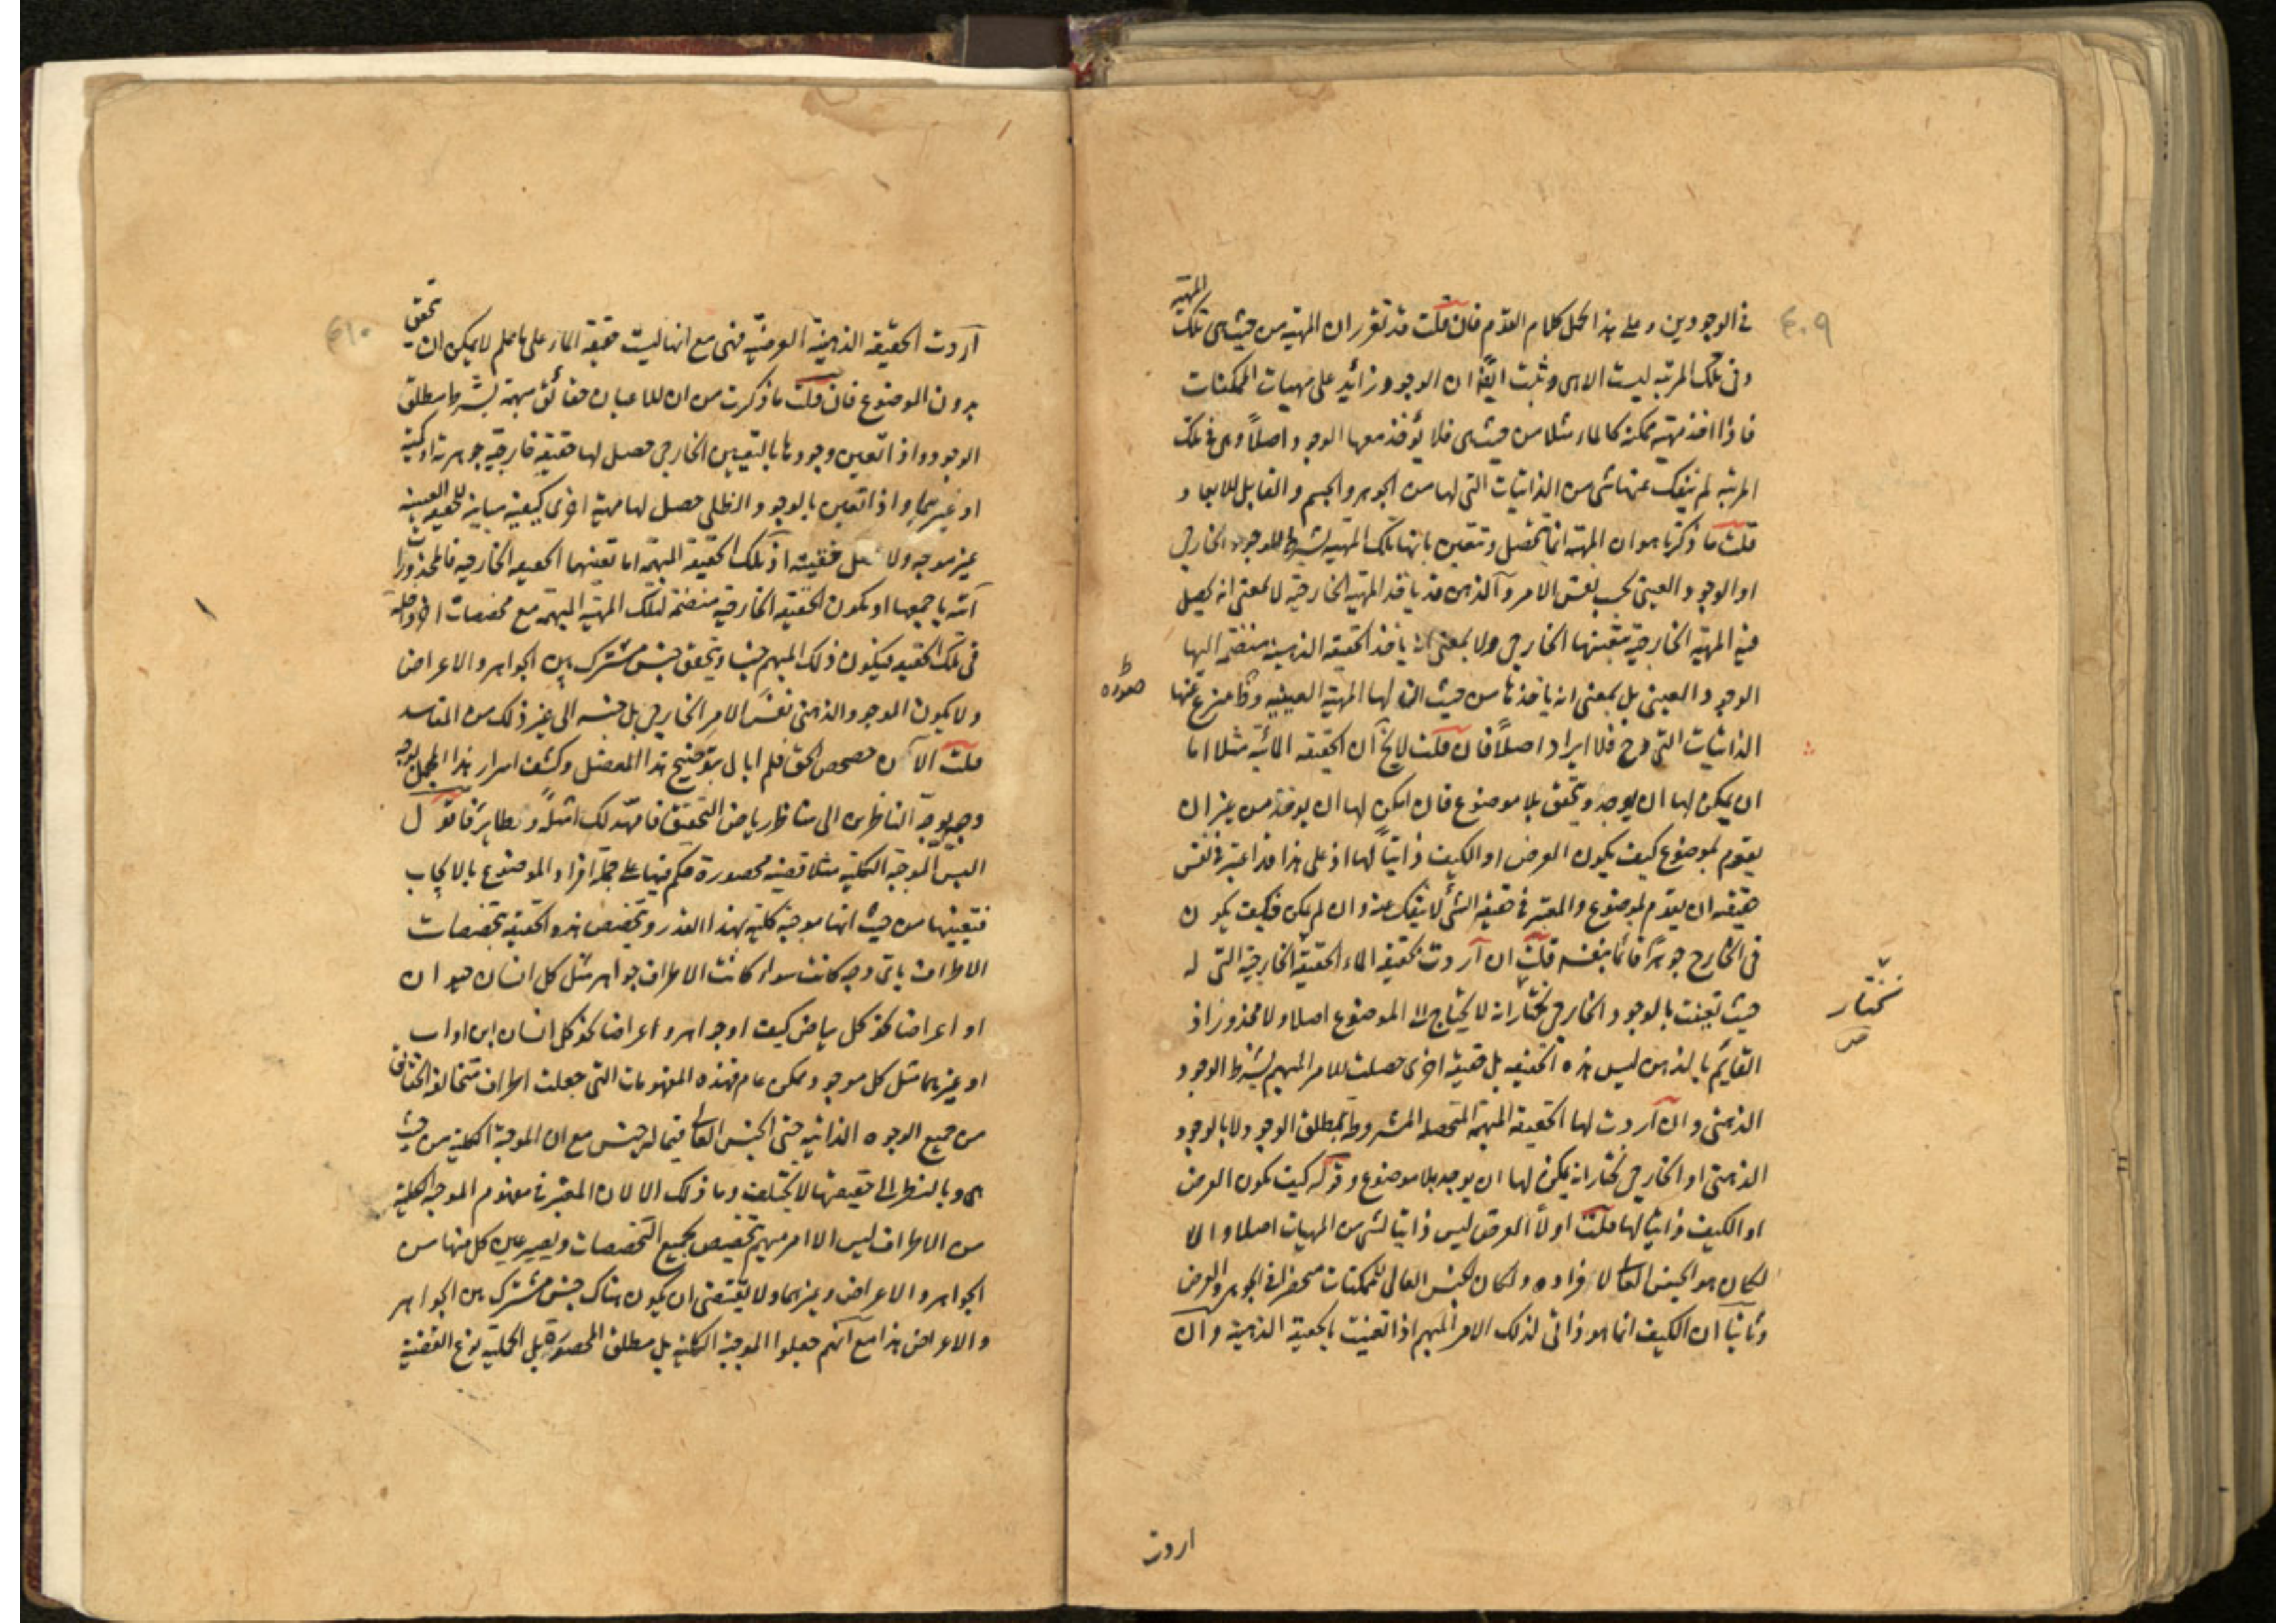 ٤٠٩
في الوجودين وعلى هذا يحمل كلام القوم فان قلت قد تقرر ان المهية من حيث هي تلك المهية
وفي تلك المرتبة ليست الا هي وثبت ايضا ان الوجود زائد على مهيات الممكنات
فاذا اخذ مهية ممكنة كالماء مثلا من حيث هي فلا يؤخذ معها الوجود اصلا وهي في تلك
المرتبة لم ينفك عنها شي من الذاتيات التي لها من الجوهر والجسم والقابل للابعاد
قلت ما ذكرنا هو ان المهية انما تحصل وتتعين بانها تلك المهية بشرط الوجود الخارجي
او الوجود العيني بحسب نفس الامر والذهن قد ياخذ المهية الخارجية لا بمعنى انه يحصل
فيه المهية الخارجية بتعينها الخارجي ولا بمعنى انه ياخذ الحقيقة الذهنية منضمة اليها
الوجود العيني بل بمعنى انه ياخذها من حيث انها لها المهية العينية وينتزع عنها
صورة
الذاتيات التي وح فلا ايراد اصلا فان قلت لا يخ ان الحقيقة المائية مثلا اما
ان يمكن لها ان يوجد ويتحقق بلا موضوع فان امكن لها ان يوجد من غير ان
يقوم بموضوع كيف يكون العرض او الكيف ذاتيا لها اذ على هذا قد اعتبر في نفس
حقيقته ان يقوم بموضوع والمعتبر في حقيقة الشي لا ينفك عنه وان لم يمكن فكيف يكون
في الخارج جوهرا قائما بنفسه قلت ان اردت بحقيقة الماء الحقيقة الخارجية التي له
حيث تعينت بالوجود الخارجي نختار انه لا يحتاج الى الموضوع اصلا ولا محذور اذ
نختار
القائم بالذهن ليس هذه الحقيقة بل حقيقة اخرى حصلت للامر المبهم بشرط الوجود
الذهني وان اردت لها الحقيقة المبهمة المتحصلة المشروطة بمطلق الوجود لا بالوجود
الذهني او الخارجي نختار انه يمكن لها ان يوجد بلا موضوع وقوله كيف يكون العرض
او الكيف ذاتيا لها قلت اولا العرض ليس ذاتيا لشي من المهيات اصلا والا
لكان هو الجنس العالي لافراده ولكان الجنس العالي للممكنات منحصرا في الجوهر والعرض
وثانيا ان الكيف انما هو ذاتي لذلك الامر المبهم اذا تعينت بالحقيقة الذهنية وان
اردت
٤١٠
اردت الحقيقة الذهنية العرضية فهي مع انها ليست حقيقة الماء على ما علم لا يمكن ان تحقق
بدون الموضوع فان قلت ما ذكرت من ان للاعيان حقائق مبهمة بشرط مطلق
الوجود واذا تعين وجودها بالتعين الخارجي حصل لها حقيقة خارجية جوهرية او كمية
او غيرهما واذا تعين بالوجود الظلي حصل لها مهية اخرى كيفية مباينة للحقيقة العينية
غير موجه ولا حقيقته اذ تلك الحقيقة المبهمة اما تعينها الحقيقة الخارجية فالمحذورات
آتية باجمعها او يكون الحقيقة الخارجية منضمة لتلك المهية المبهمة مع مخصصات اخر داخلة
في تلك الحقيقة فيكون ذلك المبهم جنسا ويتحقق جنس مشترك بين الجواهر والاعراض
ولا يكون الموجود الذهني نفس الامر الخارجي بل جنسه الى غير ذلك من المفاسد
قلت الآن حصحص الحق فلم ابال بتوضيح هذا المعضل وكشف اسرار هذا المجمل بوجه
وجيه يوجه الناظرين الى مناظر رياض التحقيق فامهد لك امثلة ونظائر فاقول
اليس الموجبة الكلية مثلا قضية محصورة حكم فيها على جملة افراد الموضوع بالايجاب
فتعينها من حيث انها موجبة كلية بهذا القدر وتخصص هذه الحقيقة بخصصات
الاطراف باي وجه كانت سواء كانت الاطراف جواهر مثل كل انسان حيوان
او اعراضا نحو كل بياض كيف او جواهر واعراضا نحو كل انسان ابن او اب
او غيرهما مثل كل موجود ممكن عام فهذه المفهومات التي جعلت اطراف متخالفة الحقائق
من جميع الوجوه الذاتية حتى الجنس العالي فيما له جنس مع ان الموجبة الكلية من حيث
هي وبالنظر الى حقيقتها لا يختلف وما ذلك الا لان المعتبر في مفهوم الموجبة الكلية
من الاطراف ليس الا امر مبهم تخصيص بجميع التخصصات ويصير عين كل منها من
الجواهر والاعراض وغيرهما ولا يقتضي ان يكون هناك جنس مشترك بين الجواهر
والاعراض هذا مع انهم جعلوا الموجبة الكلية بل مطلق المحصورة بل الحملية نوع القضية